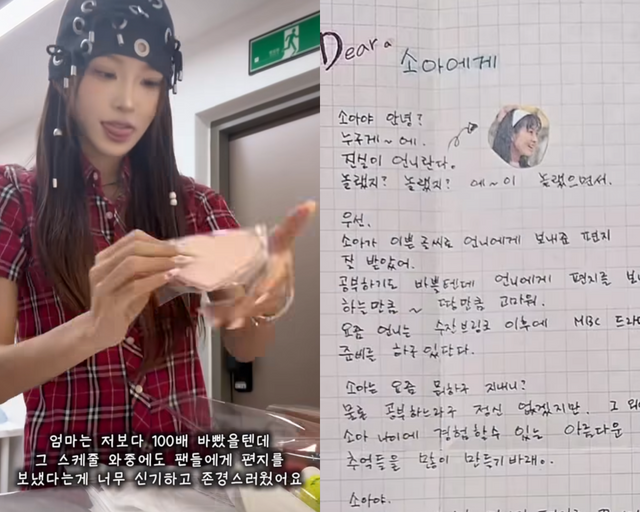 엄마는 저보다 100배 바빴을텐데
그 스케줄 와중에도 팬들에게 편지를
보냈다는게 너무 신기하고 존경스러웠어요
Dear.
소아에게
소아야 안녕?
누구게~에.
진실이 언니란다.
놀랬지? 놀랬지? 에~이 놀랬으면서.
우선,
소아가 이쁜 글씨로 언니에게 보내준 편지
잘 받았어.
공부하기도 바쁠텐데 언니에게 편지를
하는만큼 ~ 땅만큼 고마워.
요즘 언니는 이후에 MBC
준비를 하구 있단다.
소아는 요즘 뭘하구 지내니?
물론 공부하느라구 정신 없겠지만.
소아 나이에 경험할수 있는 아름다운
추억들을 많이 만들기 바래.
소아야.